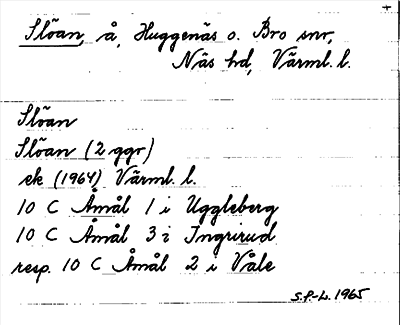 +
Slöan, å, Huggenäs o. Bro snr,
Näs hd, Värml. l.
Slöan
Slöan (2 ggr)
ek (1964) Värml. l.
10 C Åmål 1 i Uggleberg
10 C Åmål 3 i Ingrirud
resp. 10 C Åmål 2 i Våle
S.P-L. 1965